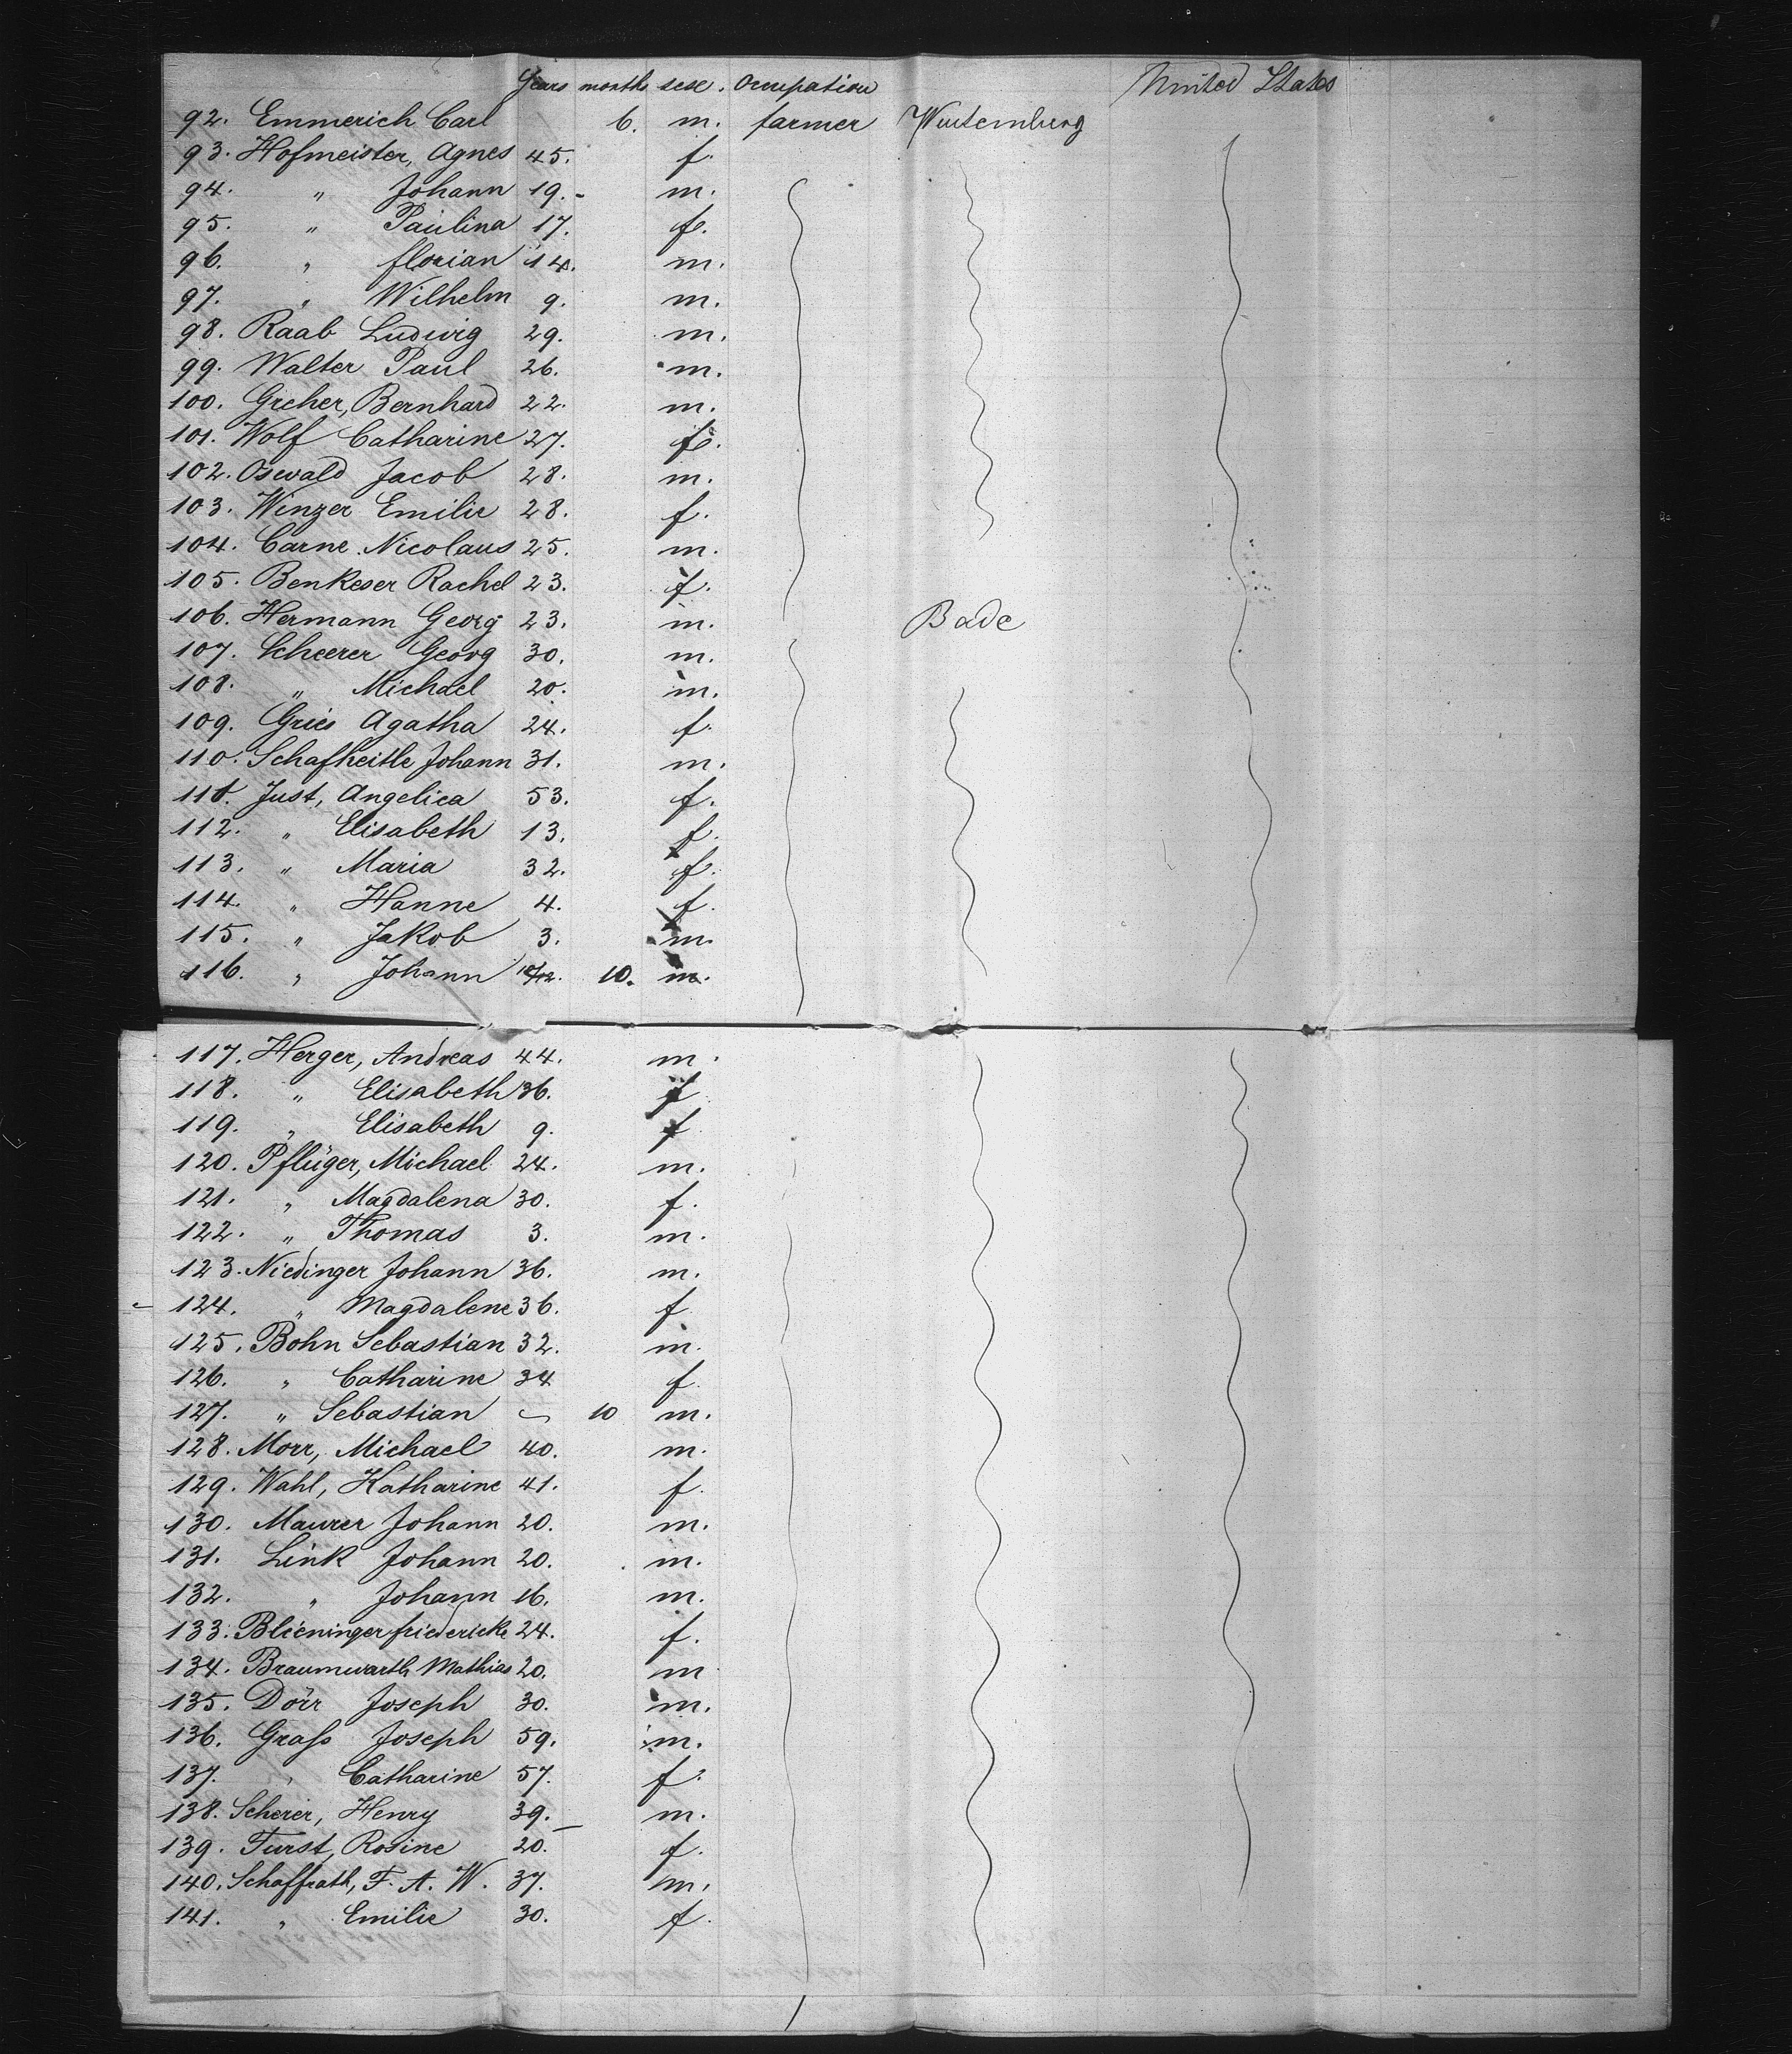 Years months sex. Occupation United States
92. Emmerich Carl 6. m. farmer Wurtemburg
93. Hofmeister, Agnes 45. f.
94. " Johann 19.- m.
95. " Paulina 17. f.
96. " florian 14. m.
97. " Wilhelm 9. m.
98. Raab Ludwig 29. m.
99. Walter Paul 26. m.
100. Greher, Bernhard 22. m.
101. Wolf Catharine 27. f.
102. Oswald Jacob 28. m.
103. Winzer Emilie 28. f.
104. Carne Nicolaus 25. m.
105. Benkeser Rachel 23. f.
106. Hermann Georg 23. m. Bade
107. Scheerer Georg 30. m.
108. " Michael 20. m.
109. Gries Agatha 24. f.
110. Schafheitle Johann 31. m.
111. Just, Angelica 53. f.
112. " Elisabeth 13. f.
113. " Maria 32. f.
114. " Hanne 4. f.
115. " Jakob 3. m.
116. " Johann 10/12. 10. m.
117. Herger, Andreas 44. m.
118. " Elisabeth 36. f
119. " Elisabeth 9. f
120. Pflüger, Michael 24. m.
121. " Magdalena 30. f.
122. " Thomas 3. m.
123. Niedinger Johann 36. m.
124. " Magdalene 36. f
125. Bohn Sebastian 32. m.
126. " Catharine 34 f.
127. " Sebastian - 10 m.
128. Morr, Michael 40. m.
129. Wahl, Katharine 41. f.
130. Maurer Johann 20. m.
131. Link Johann 20. m.
132. " Johann 16. m.
133. Blieninger friedericke 24. f.
134. Braumwarth Mathias 20. m
135. Dörr Joseph 30. m.
136. Graſs Joseph 59. m.
137. " Catharine 57. f.
138. Scherer, Henry 39. m.
139. Furst, Rosine 20. f.
140. Schaffrath, F. A. W. 37. m.
141. " Emilie 30. f.